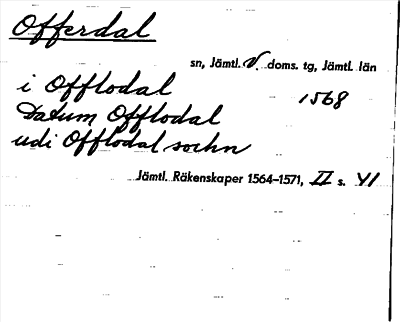 Offerdal
sn, Jämtl. V. doms. tg, Jämtl. län
i Offlodal 1568
Datum Offlodal
udi Offlodal sochn
Jämtl. Räkenskaper 1564–1571, II s. 41